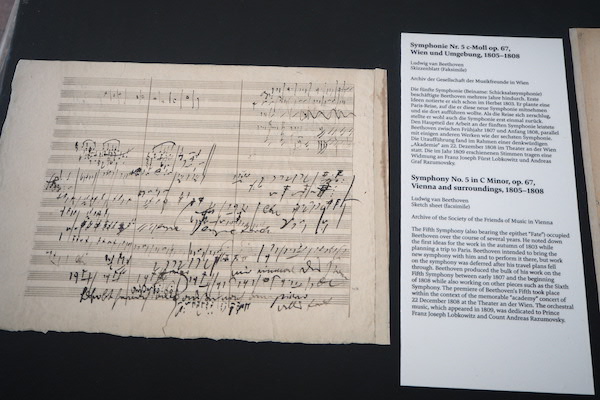 Symphonie Nr. 5 c-Moll op. 67,
Wien und Umgebung, 1805–1808
Ludwig van Beethoven
Skizzenblatt (Faksimile)
Archiv der Gesellschaft der Musikfreunde in Wien
Die fünfte Symphonie (Beiname: Schicksalssymphonie)
beschäftigte Beethoven mehrere Jahre hindurch. Erste
Ideen notierte er sich schon im Herbst 1803. Er plante eine
Paris-Reise, auf die er diese neue Symphonie mitnehmen
und sie dort aufführen wollte. Als die Reise sich zerschlug,
stellte er wohl auch die Symphonie erst einmal zurück.
Den Hauptteil der Arbeit an der fünften Symphonie leistete
Beethoven zwischen Frühjahr 1807 und Anfang 1808, parallel
mit einigen anderen Werken wie der sechsten Symphonie.
Die Uraufführung fand im Rahmen einer denkwürdigen
„Akademie“ am 22. Dezember 1808 im Theater an der Wien
statt. Die im Jahr 1809 erschienenen Stimmen tragen eine
Widmung an Franz Joseph Fürst Lobkowitz und Andreas
Graf Rasumowsky.
Symphony No. 5 in C Minor, op. 67,
Vienna and surroundings, 1805–1808
Ludwig van Beethoven
Sketch sheet (facsimile)
Archive of the Society of the Friends of Music in Vienna
The Fifth Symphony (also bearing the epithet "Fate") occupied
Beethoven over the course of several years. He noted down
the first ideas for the work in the autumn of 1803 while
planning a trip to Paris. Beethoven intended to bring the
new symphony with him and to perform it there, but work
on the symphony was deferred after his travel plans fell
through. Beethoven produced the bulk of his work on the
Fifth Symphony between early 1807 and the beginning
of 1808 while also working on other pieces such as the Sixth
Symphony. The premiere of Beethoven's Fifth took place
within the context of the memorable "academy" concert of
22 December 1808 at the Theater an der Wien. The orchestral
music, which appeared in 1809, was dedicated to Prince
Franz Joseph Lobkowitz and Count Andreas Razumovsky.